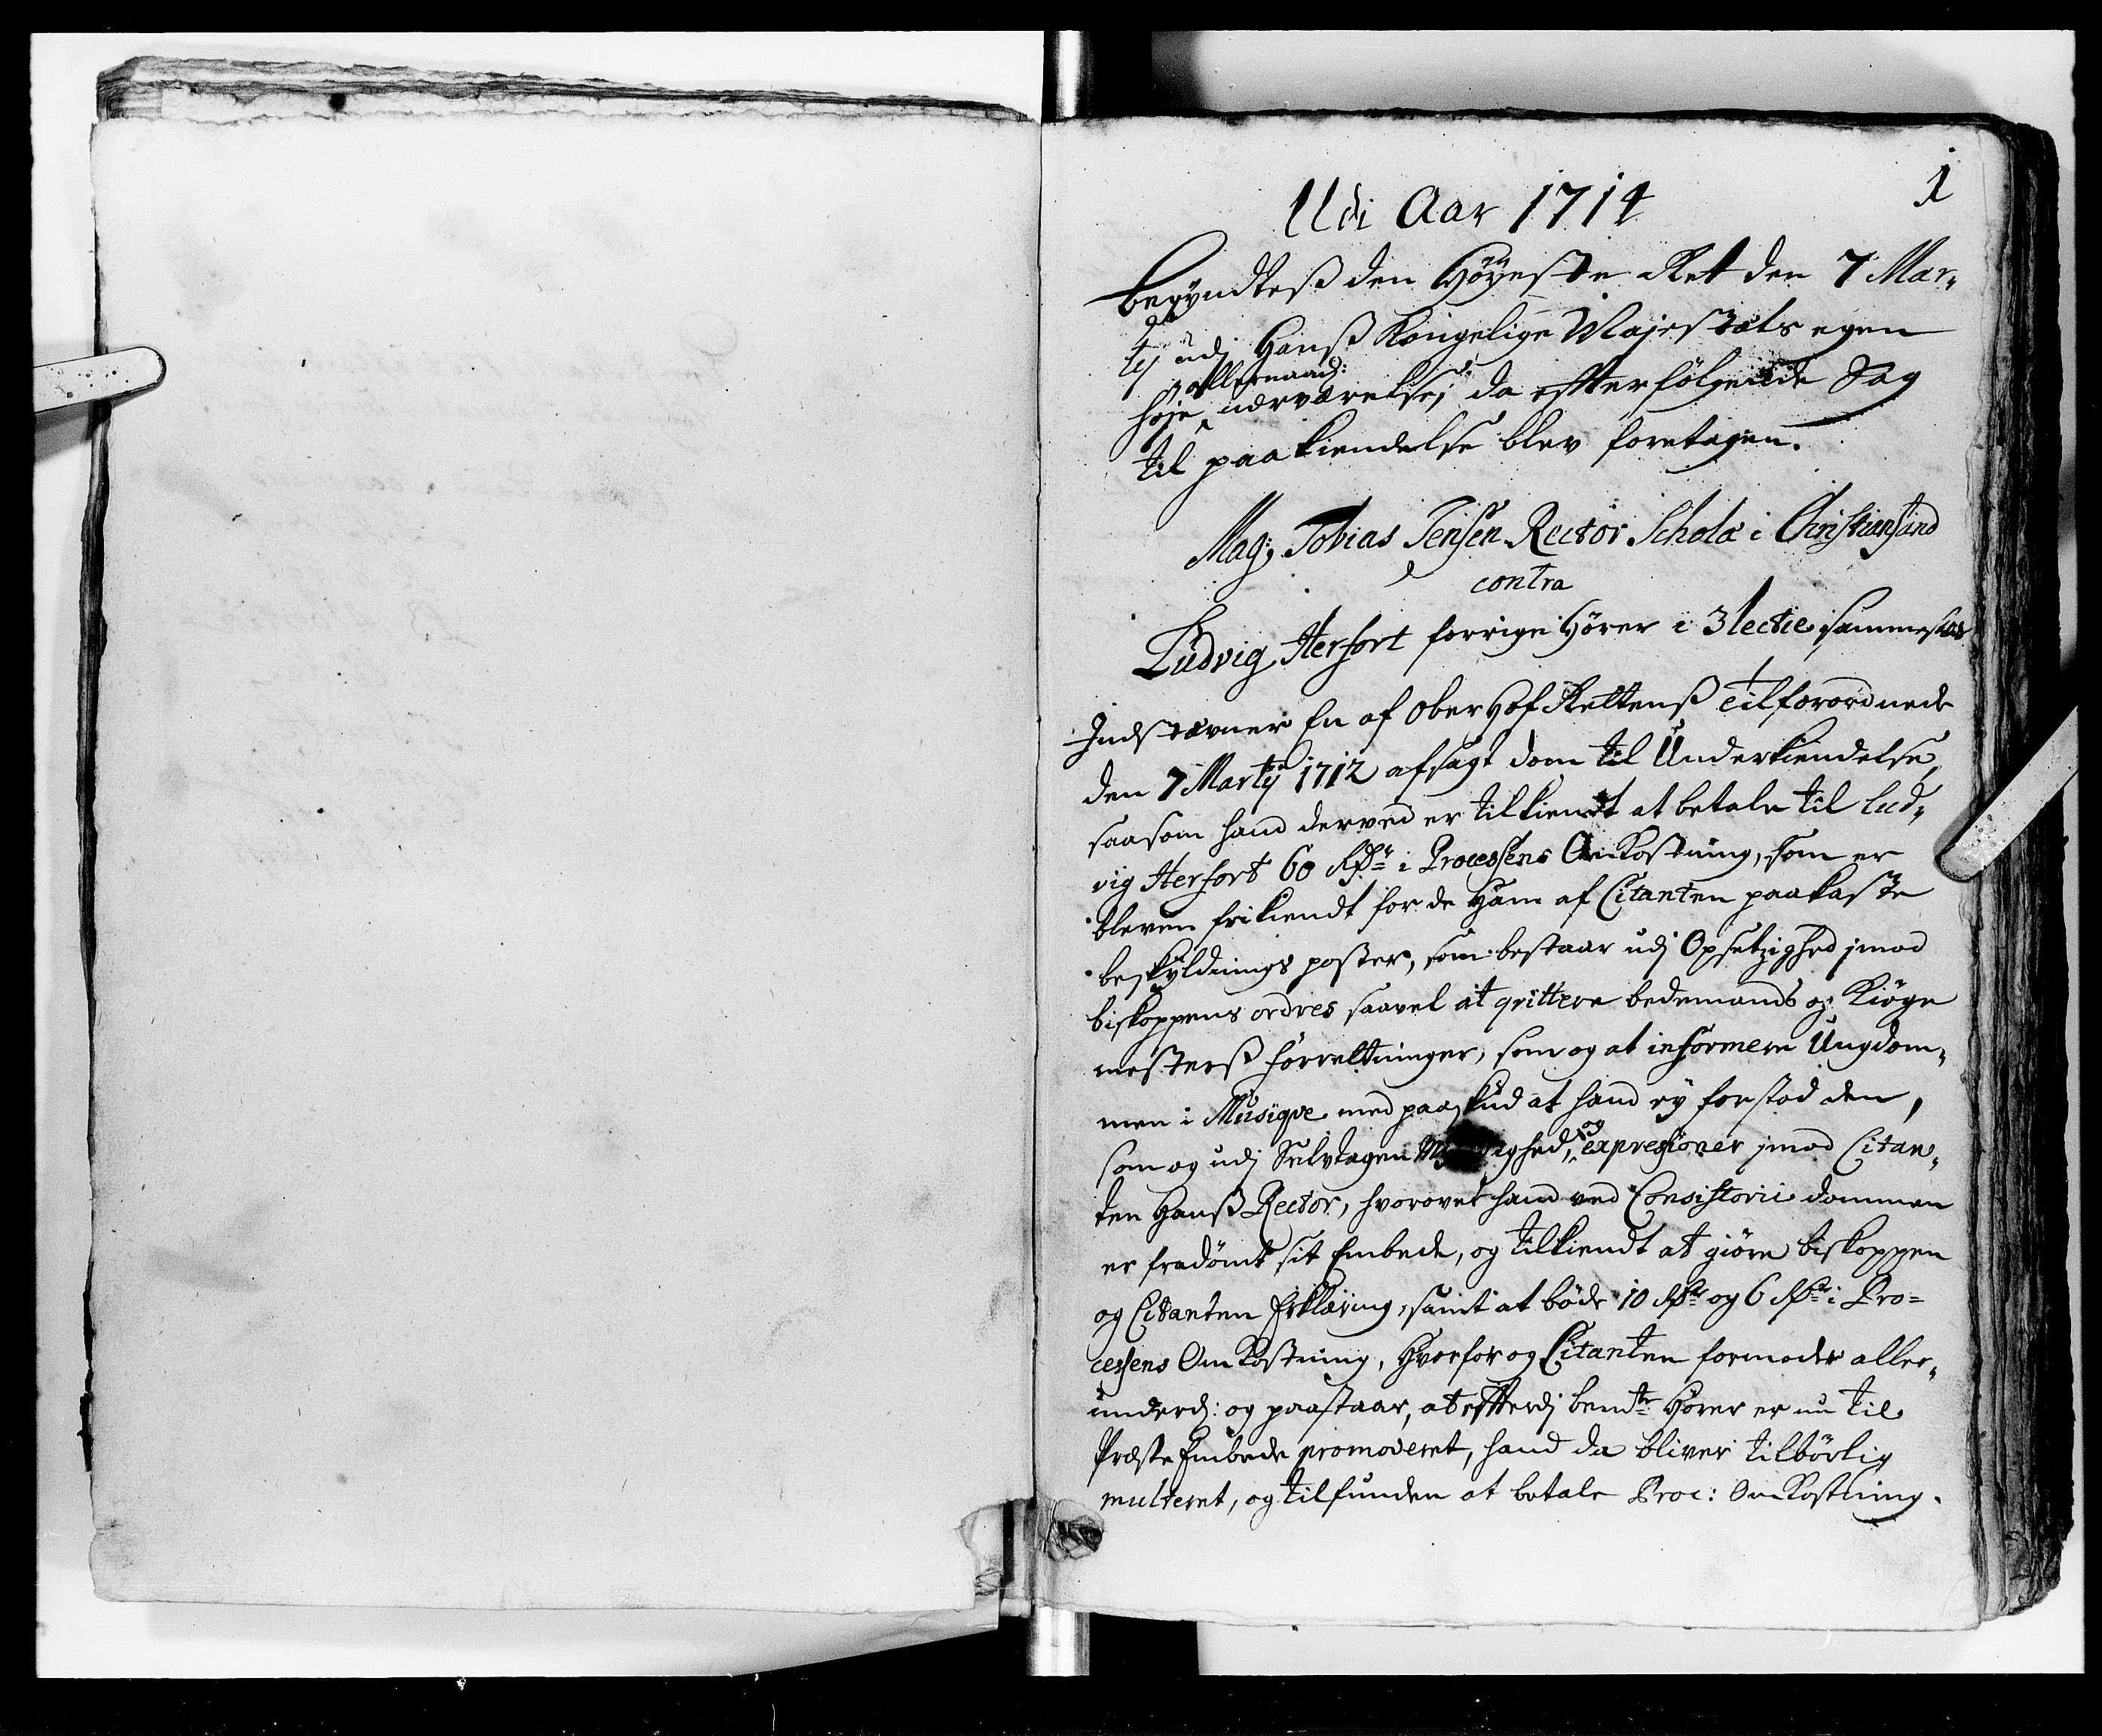 1
Udi Aar 1714
begyndteß den Høyeste Ret den 7 Mar„
tij udj Hanß Kongelige Majestæts egen
allernaad:
høje nærværelse, da effterfølgende Sag
til paakiendelse blev foretagen.
Mag: Tobias Jensen Rector Scholæ i Christiansand
contra
Ludvig Herfort forrige Hører i 3 lectie sammested
Indstævner En af Ober Hof Rettenß Tilforordnede
den 7 Martij 1712 afsagt dom til Underkiendelse,
saasom hand derved er tilkiendt at betale til Lud„
vig Herfort 60 Rdr i Processens Omkostning, som er
bleven frikiendt for de Ham af Citanten paakaste
beskyldnings poster, som bestaar udj Opsetzighed jmod
biskoppens ordres saavel at qvittere bedemands og Kiøge
mesterß forretninger, som og at informere Ungdom„
men i Musiqve med paaskud at hand ey forstod den,
som og udj Selvtagen og expressioner jmod Citan„
ten Hanß Rector, hvorover hand ved Consistorii dommen
er fradømt sit Embede, og tilkiendt at giøre biskoppen
og Citanten Erklæring, samt at bøde 10 Rdr og 6 Rdr i Pro=
cessens Omkostning, Hvorfor og Citanten formoder aller„
underd: og paastaar, at effterdj bemte Hører er nu til
Præste Embede promoveret, hand da bliver tilbørlig
mulcteret, og tilfunden at betale Proc: Omkostning.